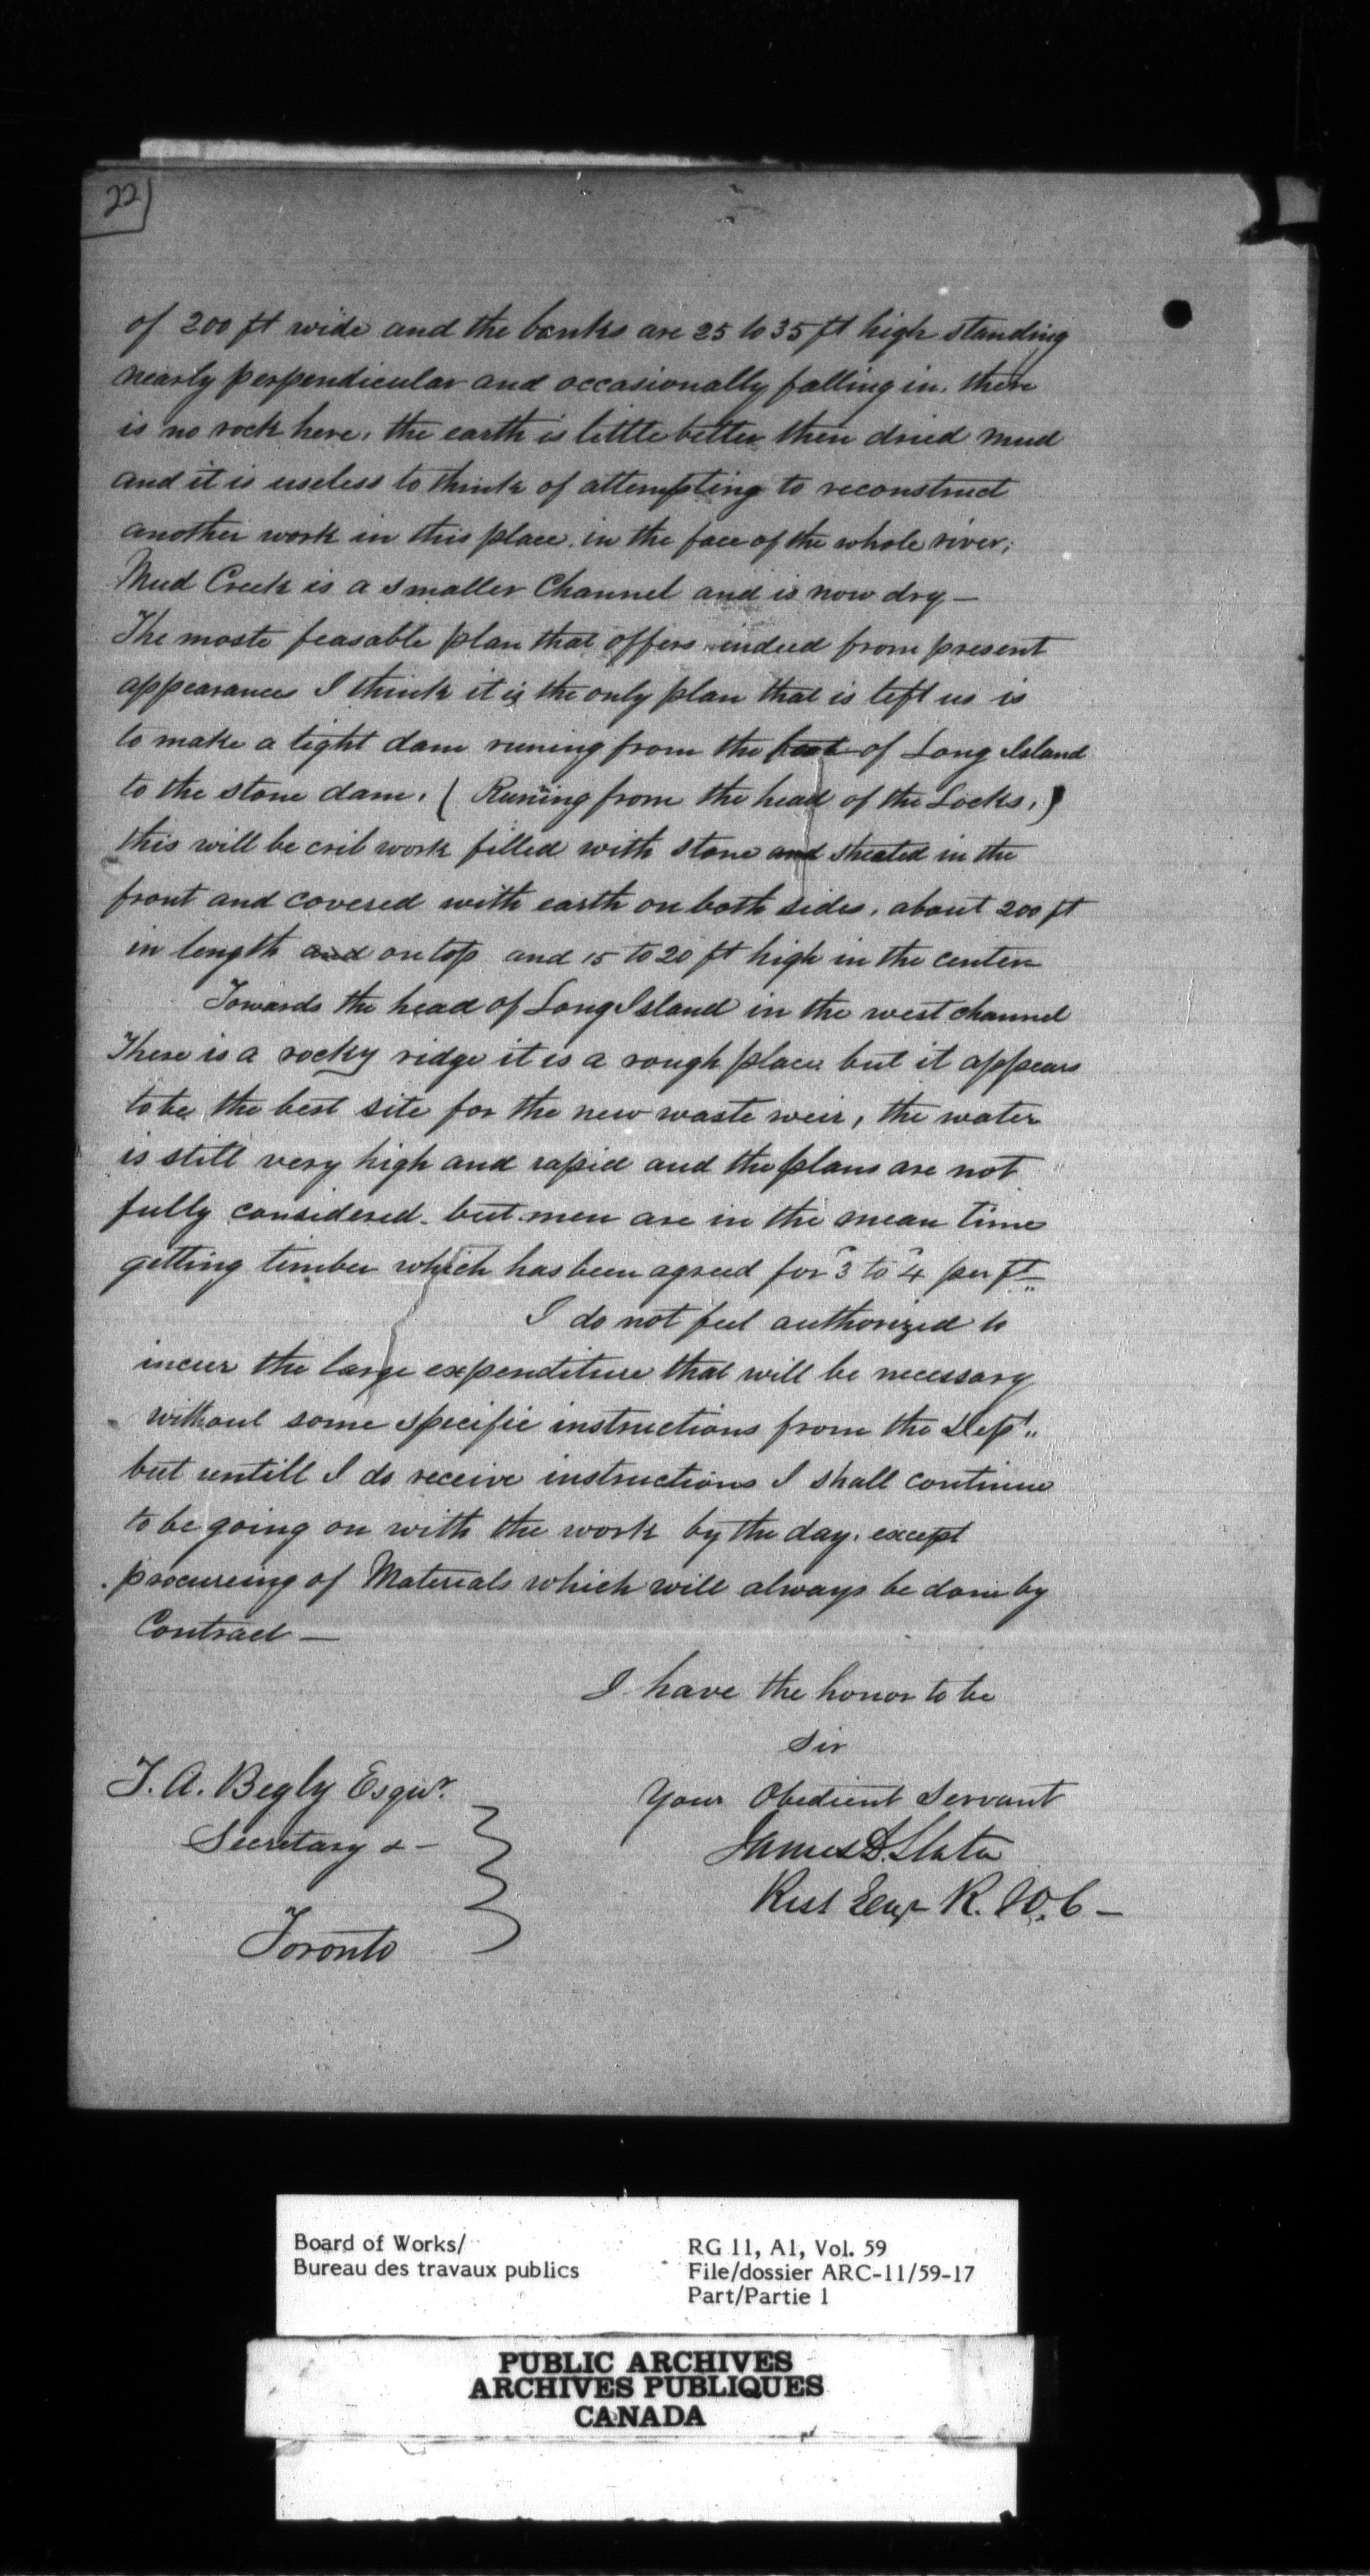 22
of 200 ft wide and the banks are 25 to 35 ft high standing
nearly perpendicular and occasionally falling in. there
is no rock here, the earth is little better then dried mud
and it is useless to think of attempting to reconstruct
another work in this place, in the face of the whole river;
Mud Creek is a smaller Channel and is now dry —
The moste feasable plan that offers indeed from present
appearances I think it is the only plan that is left us is
to make a tight dam runing from the foot of Long Island
to the stone dam. ( Running from the head of the Locks, )
this will be crib work filled with stone and sheated in the
front and covered with earth on both sides, about 200 ft
in length and on top and 15 to 20 ft high in the center
Towards the head of Long Island in the west channel
There is a rocky ridge it is a rough place but it appears
to be the best site for the new waste weir, the water
is still very high and rapid and the plans are not
fully considered. but men are in the mean time
getting timber which has been agreed for 3 to 4 per ft
I do not feel authorized to
incur the large expenditure that will be necessary
without some specific instructions from the Dept
but untill I do receive instructions I shall continue
to be going on with the work by the day. except
procureing of Materials which will always be done by
Contract —
I have the honor to be
Sir
Your Obedient Servant
James D. Slater
Rest Engr R. W. C —
T. A. Begly Esqur.
Secretary & —
Toronto
Board of Works/
Bureau des travaux publics
RG 11, A1, Vol. 59
File/dossier ARC-11/59-17
Part/Partie 1
PUBLIC ARCHIVES
ARCHIVES PUBLIQUES
CANADA